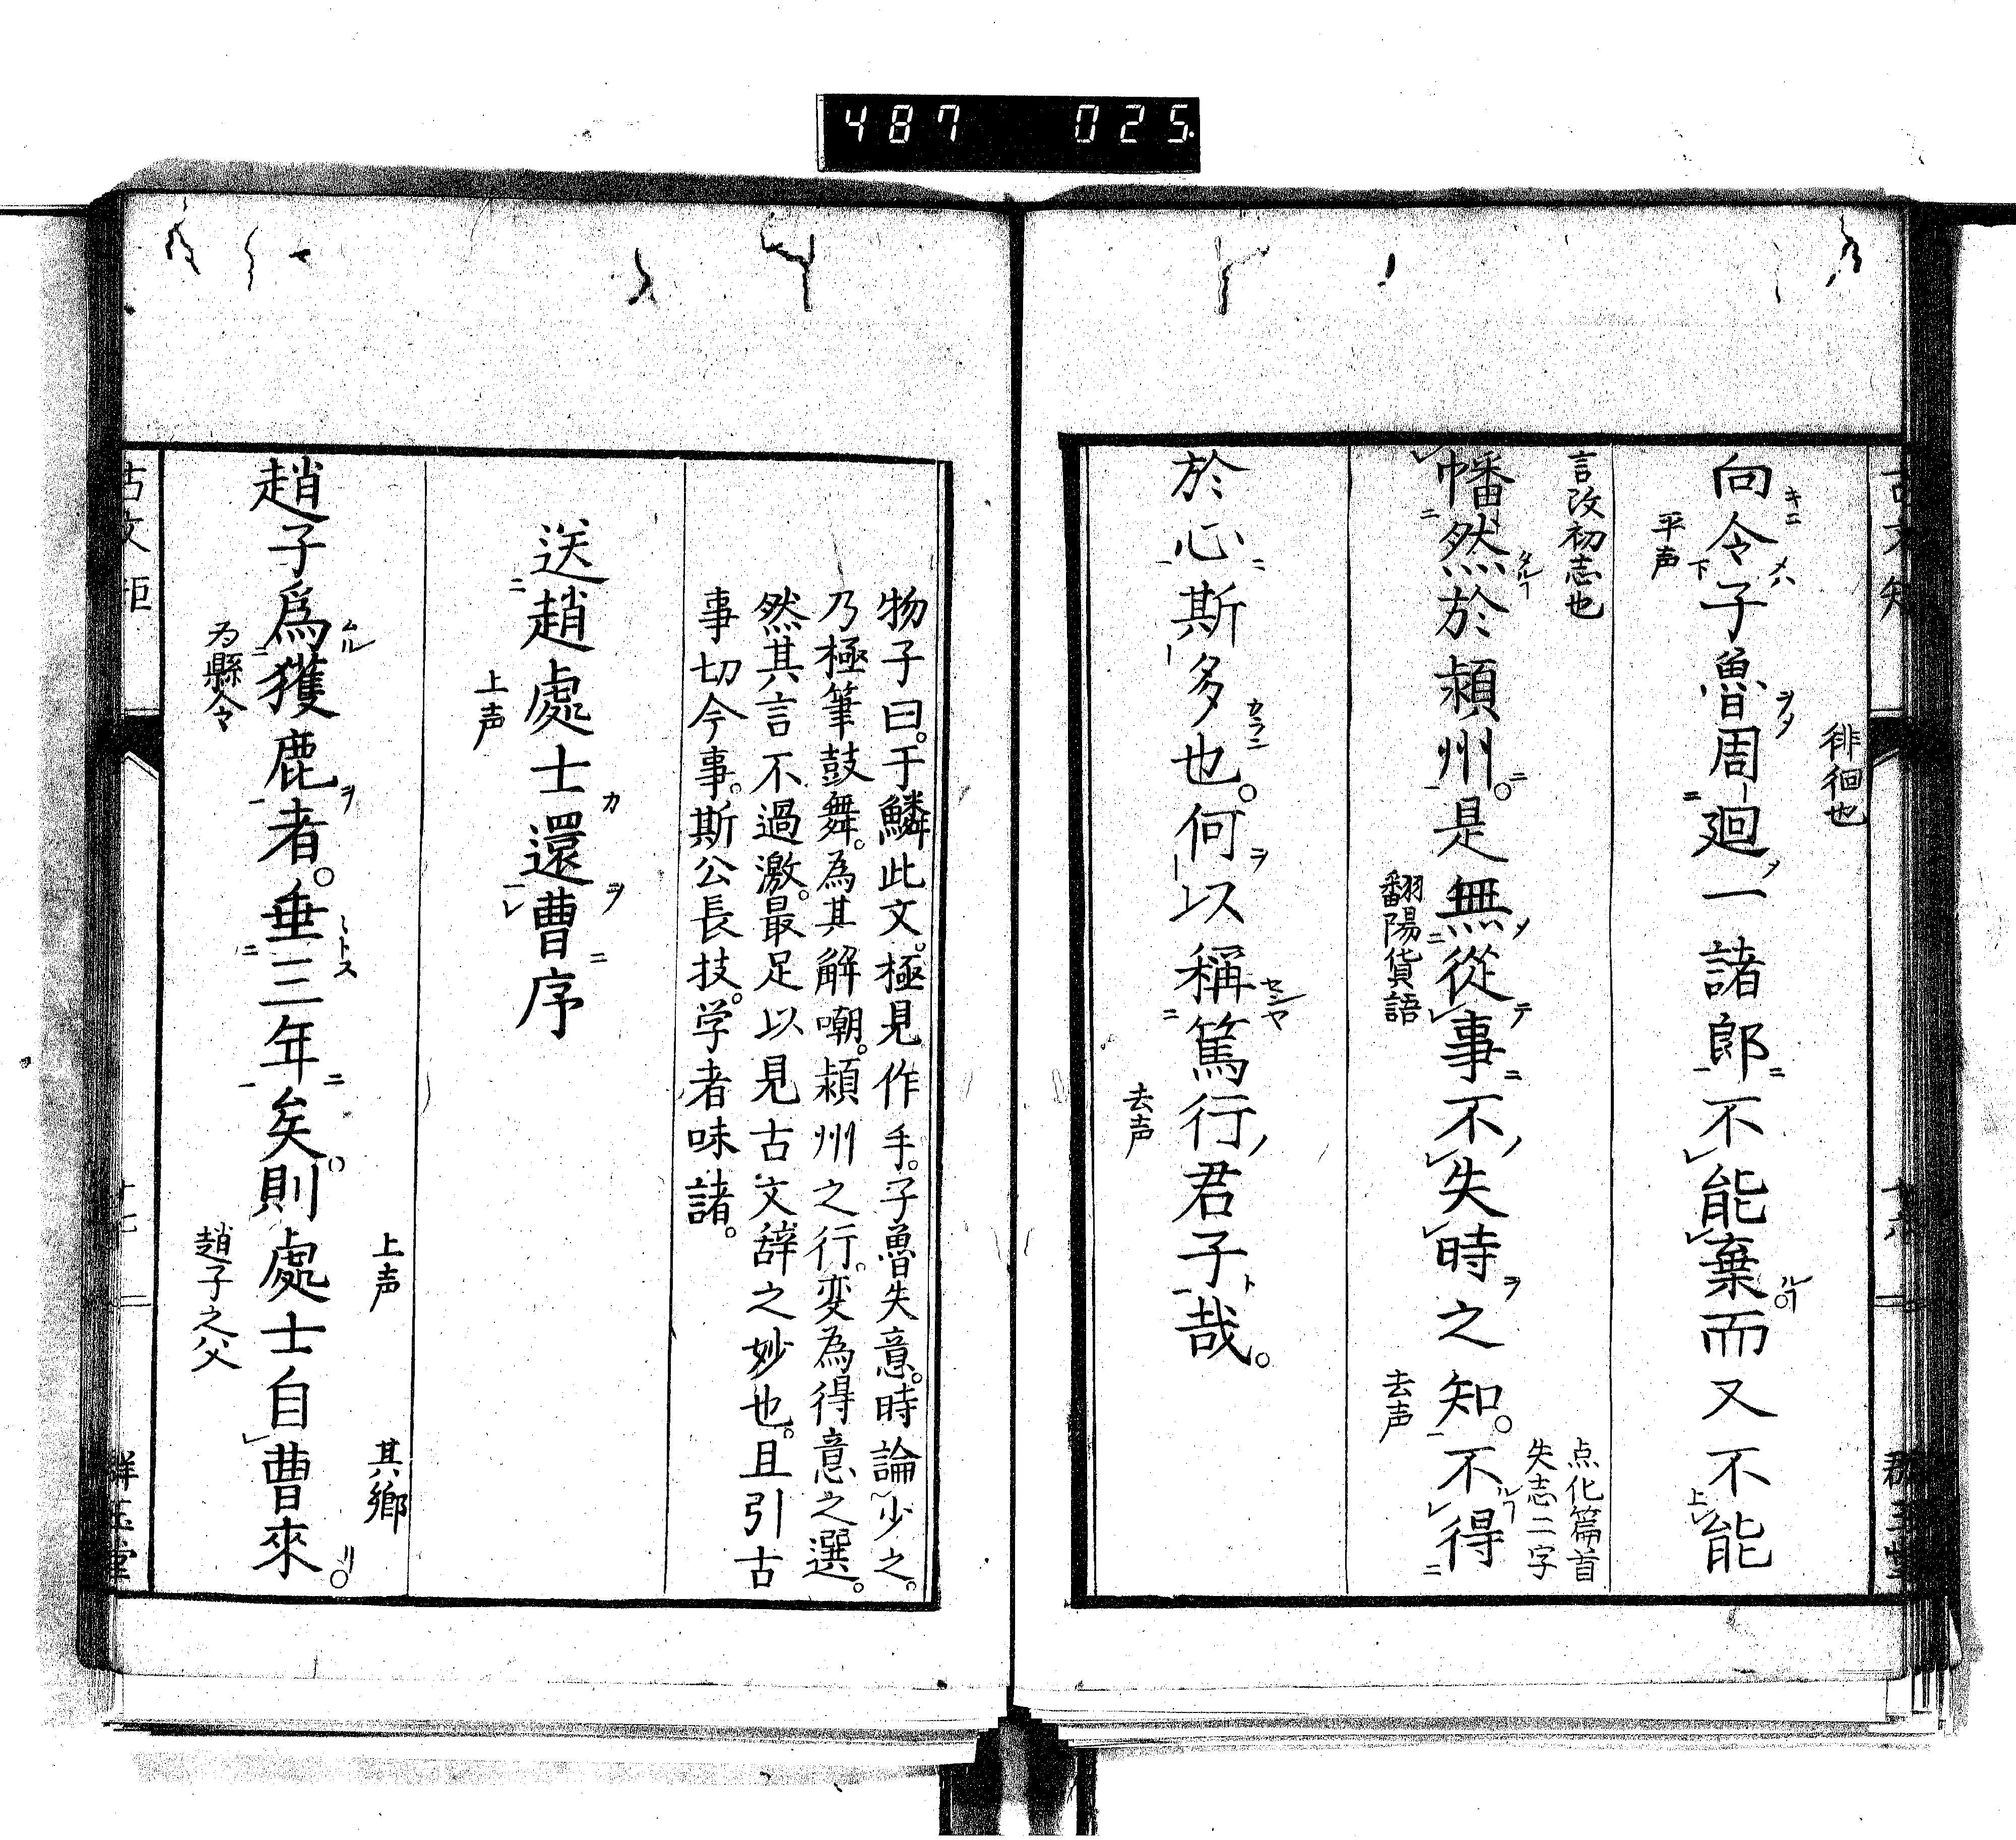 487 025
徘徊也
向令子魯周廻一諸郎不能棄而又不能
平声
言改初志也
点化篇首
失志二字
幡然於潁州。是無從事不失時之知。不得
翻陽貨語
去声
於心斯多也。何以稱篤行君子哉。
去声
物子曰。于鱗此文。極見作手。子魯失意。時論少之。
乃極筆鼓舞。為其解嘲。潁州之行。変為得意之選。
然其言不過激。最足以見古文辞之妙也。且引古
事切今事。斯公長技。学者味諸。
送趙處士還曹序
上声
上声
其鄉
趙子爲獲鹿者。垂三年矣。則處士自曹來。
为縣令
趙子之父
古文矩
十七
群玉堂